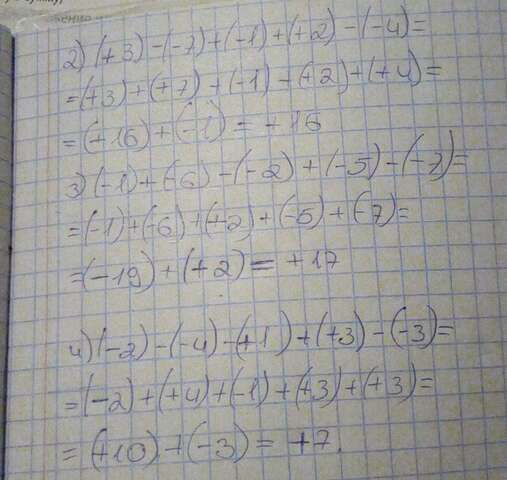 2) (+3) - (-7) + (-1) + (+2) - (-4) =
= (+3) + (+7) + (-1) + (+2) + (+4) =
= (+16) + (-1) = +16
3) (-1) + (-6) - (-2) + (-5) - (-7) =
= (-1) + (-6) + (+2) + (-5) + (-7) =
= (-19) + (+2) = +17
4) (-2) - (-4) - (+1) + (+3) - (-3) =
= (-2) + (+4) + (-1) + (+3) + (+3) =
= (+10) + (-3) = +7.